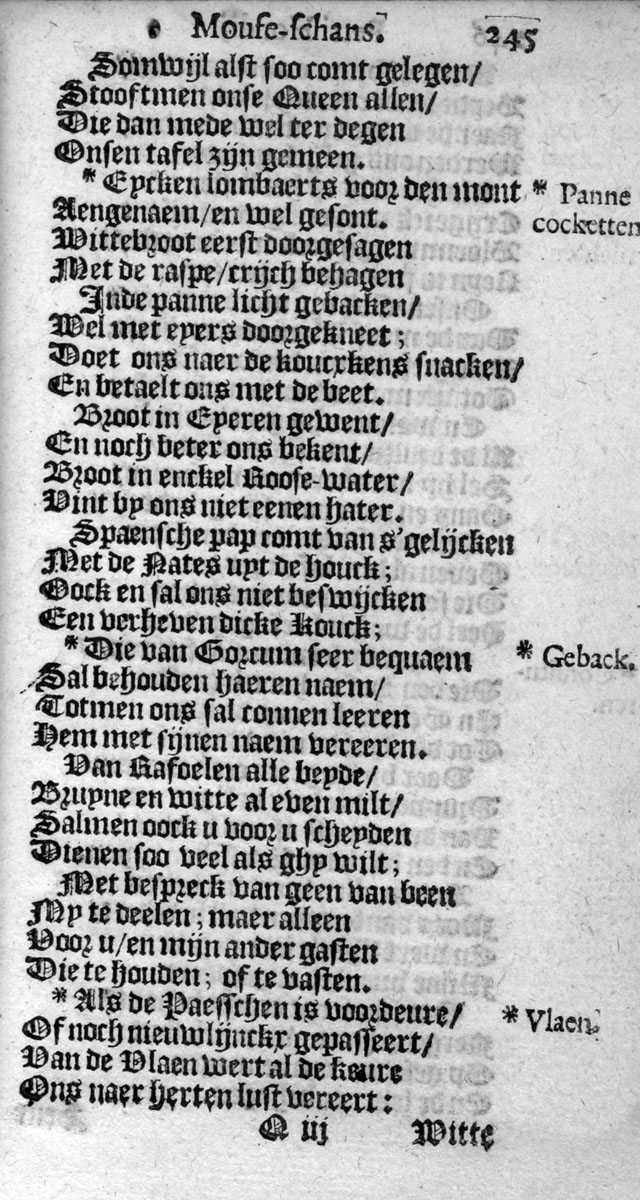 Mouse-schans. 245
Somwijl alst soo comt gelegen/
Stooftmen onse Queen allen/
Die dan mede wel ter degen
Onsen tafel zijn gemeen.
* Eycken lombaerts voor den mont * Panne
Aengenaem/en wel gesont. cocketten
Wittebroot eerst doorgesagen
Met de raspe/crijch behagen
Inde panne licht gebacken/
Wel met eyers doorgekneet;
Doet ons naer de koucxkens snacken/
En betaelt ons met de beet.
Broot in Eyeren gewent/
En noch beter ons bekent/
Broot in enckel Roose-water/
Vint by ons niet eenen hater.
Spaensche pap comt van s'gelijcken
Met de Nates uyt de houck;
Oock en sal ons niet beswijcken
Een verheven dicke Kouck;
* Die van Gorcum seer bequaem * Geback.
Sal behouden haeren naem/
Totmen ons sal connen leeren
Hem met sijnen naem vereeren.
Van Rafoelen alle beyde/
Bruyne en witte al even milt/
Salmen oock u voor u scheyden
Dienen soo veel als ghy wilt;
Met bespreck van geen van been
My te deelen; maer alleen
Voor u/en mijn ander gasten
Die te houden; of te vasten.
* Als de Paesschen is voordeure/ * Vlaen.
Of noch nieuwlijnckx gepasseert/
Van de Vlaen wert al de keure
Ons naer herten lust vereert:
Q iij Witte